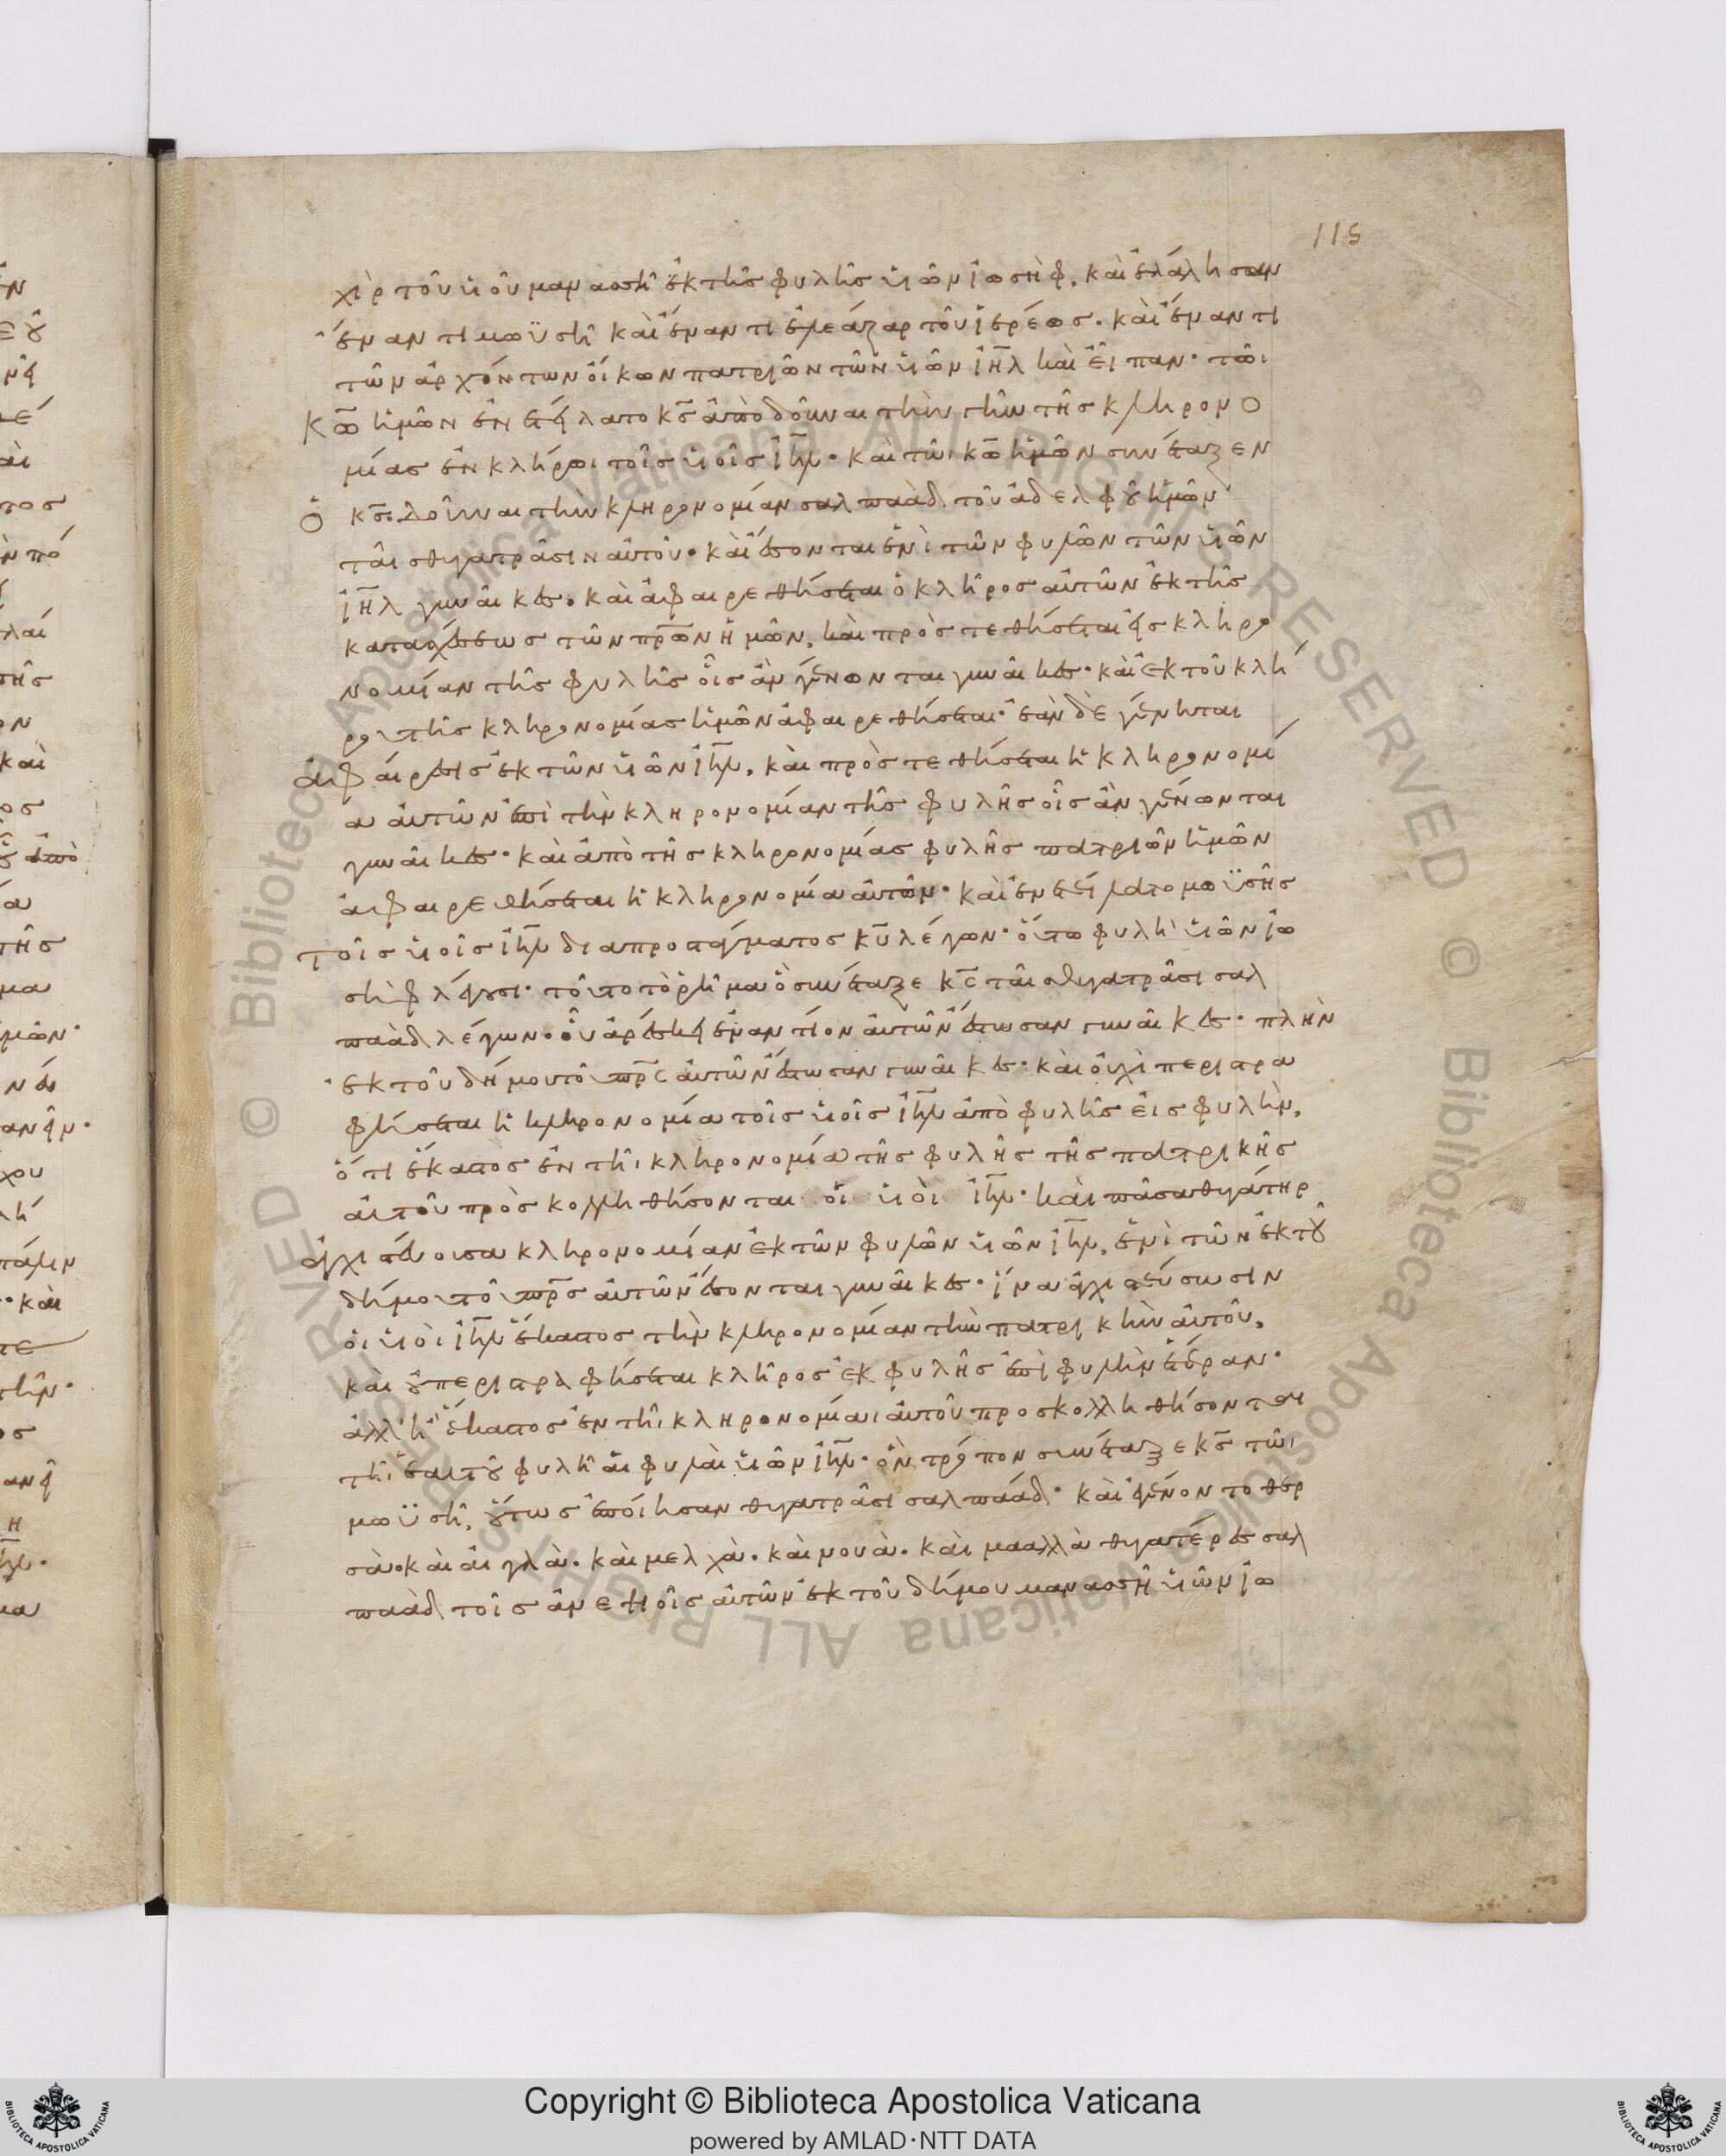 115
χὶρ τοῦ υἱοῦ μανασσῆ ἐκ τῆς φυλῆς υἱῶν ἰωσὴφ. καὶ ἐλάλησαν
ἔναντι μωϋσῆ καὶ ἔναντι ἐλεάζαρ τοῦ ἱερέως. καὶ ἔναντι
τῶν ἀρχόντων οἴκων πατριῶν τῶν υἱῶν ἰη̅λ καὶ εἶπαν· τῶι
κω̅ ἡμῶν ἐνετείλατο κς̅ ἀποδοῦναι τὴν γῆν τῆς κληρονο
μίας ἐν κλήρωι τοῖς υἱοῖς ἰη̅λ· καὶ τῶι κω̅ ἡμῶν συνέταξεν
ὁ κς̅. δοῦναι τὴν κληρονομίαν σαλπαὰδ τοῦ ἀδελφοῦ ἡμῶν
ταῖς θυγατράσιν αὐτοῦ· καὶ ἔσονται ἑνὶ τῶν φυλῶν τῶν υἱῶν
ἰη̅λ γυναῖκες. καὶ ἀφαιρεθήσεται ὁ κλῆρος αὐτῶν ἐκ τῆς
κατασχέσεως τῶν πρω̅ν ἡμῶν. καὶ προστεθήσεται εἰς κληρο
νομίαν τῆς φυλῆς οἷς ἂν γένωνται γυναῖκες· καὶ ἐκ τοῦ κλή
ρου τῆς κληρονομίας ἡμῶν ἀφαιρεθήσεται· ἐὰν δὲ γένηται
ἄφαιρεσις ἐκ τῶν υἱῶν ἰη̅λ. καὶ προστεθήσεται ἡ κληρονομί
α αὐτῶν ἐπὶ τὴν κληρονομίαν τῆς φυλῆς οἷς ἂν γένωνται
γυναῖκες· καὶ ἀπὸ τῆς κληρονομίας φυλῆς πατριῶν ἡμῶν
ἀφαιρεθήσεται ἡ κληρονομία αὐτῶν· καὶ ἐνετείλατο μωϋσῆς
τοῖς υἱοῖς ἰη̅λ διαπροστάγματος κυ̅ λέγων· οὕτω φυλὴ υἱῶν ἰω
σὴφ λέγουσι· τοῦτο τὸ ῥῆμα ὃ συνέταξε κς̅ ταῖς θυγατράσι σαλ
παὰδ λέγων· οὗ ἀρέσκει ἐναντίον αὐτῶν ἔστωσαν γυναῖκες· πλὴν
ἐκ τοῦ δήμου τοῦ πρς̅ αὐτῶν ἔστωσαν γυναῖκες· καὶ οὐχὶ περιστρα
φήσεται ἡ κληρονομία τοῖς υἱοῖς ἰη̅λ ἀπὸ φυλῆς εἰς φυλὴν.
ὅτι ἕκαστος ἐν τῆι κληρονομία τῆς φυλῆς τῆς πατρικῆς
αὐτοῦ προσκολληθήσονται οἱ υἱοὶ ἰη̅λ· καὶ πᾶσα θυγάτηρ
ἀγχιστεύουσα κληρονομίαν ἐκ τῶν φυλῶν υἱῶν ἰη̅λ. ἑνὶ τῶν ἐκ τοῦ
δήμου τοῦ πρς̅ αὐτῶν ἔσονται γυναῖκες· ἵνα ἀγχιστεύσωσιν
οἱ υἱοὶ ἰη̅λ ἕκαστος τὴν κληρονομίαν τὴν πατρικὴν αὐτοῦ.
καὶ οὐ περιστραφήσεται κλῆρος ἐκ φυλῆς ἐπὶ φυλὴν ἑτέραν·
ἀλλ' ἢ ἕκαστος ἐν τῆι κληρονομίαι αὐτοῦ προσκολληθήσονται
τῆι ἑαυτοῦ φυλῆ αἱ φυλαὶ υἱῶν ἰη̅λ· ὃν τρόπον συνέταξε κς̅ τῶι
μωϋσῆ, οὕτως ἐποίησαν θυγατράσι σαλπαάδ· καὶ ἐγένοντο θερ
σὰ. καὶ αἰγλὰ. καὶ μελχὰ. καὶ νουὰ. καὶ μααλλὰ θυγατέρες σαλ
παὰδ τοῖς ἀνεψιοῖς αὐτῶν ἐκ τοῦ δήμου μανασσῆ υἱῶν ἰω
Copyright © Biblioteca Apostolica Vaticana
powered by AMLAD·NTT DATA